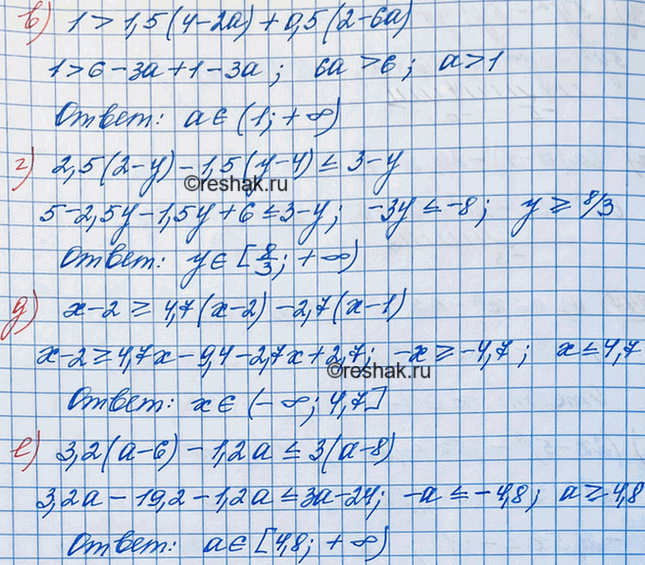 в) 1 > 1,5(4-2a) + 0,5(2-6a)
1 > 6 - 3a + 1 - 3a ; 6a > 6 ; a > 1
Ответ: a ∈ (1; +∞)
г) 2,5(2-y) - 1,5(y-4) ≤ 3 - y
©reshak.ru
5 - 2,5y - 1,5y + 6 ≤ 3 - y ; -3y ≤ -8 ; y ≥ 8/3
Ответ: y ∈ [8/3 ; +∞)
д) x - 2 ≥ 4,7(x-2) - 2,7(x-1)
x - 2 ≥ 4,7x - 9,4 - 2,7x + 2,7 ; -x ≥ -4,7 ; x ≤ 4,7
©reshak.ru
Ответ: x ∈ (-∞; 4,7]
е) 3,2(a-6) - 1,2a ≤ 3(a-8)
3,2a - 19,2 - 1,2a ≤ 3a - 24 ; -a ≤ -4,8 ; a ≥ 4,8
Ответ: a ∈ [4,8; +∞)